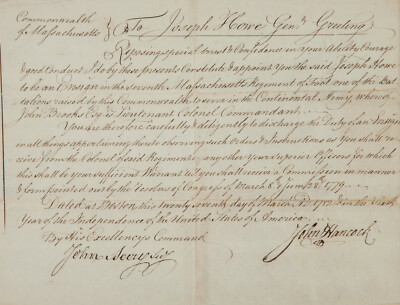 Commonwealth
of Massachusetts
To Joseph Howe Gent. Greeting
Reposing special trust & Confidence in your Ability Courage
& good Conduct I do by these presents Constitute & appoint you the said Joseph Howe
to be an Ensign in the seventh Massachusetts Regiment of Foot one of the Bat
talions raised by this Commonwealth to serve in the Continental Army, whereof
John Brooks Esqr is Lieutenant Colonel Commandant
You are therefore carefully & diligently to discharge the Duty of an Ensign
in all things appertaining thereto observing such Orders & Instructions as you shall re
ceive from the Colonel of said Regiment or any other your superior Officers for which
this shall be your sufficient Warrant until you shall receive a Commission in manner
& form pointed out by the resolves of Congress of March 8 & June 28 1779
Dated at Boston this twenty seventh day of March 1782 in the Sixth
Year of the Independence of the United States of America
By His Excellency's Command
John Avery Secy
John Hancock